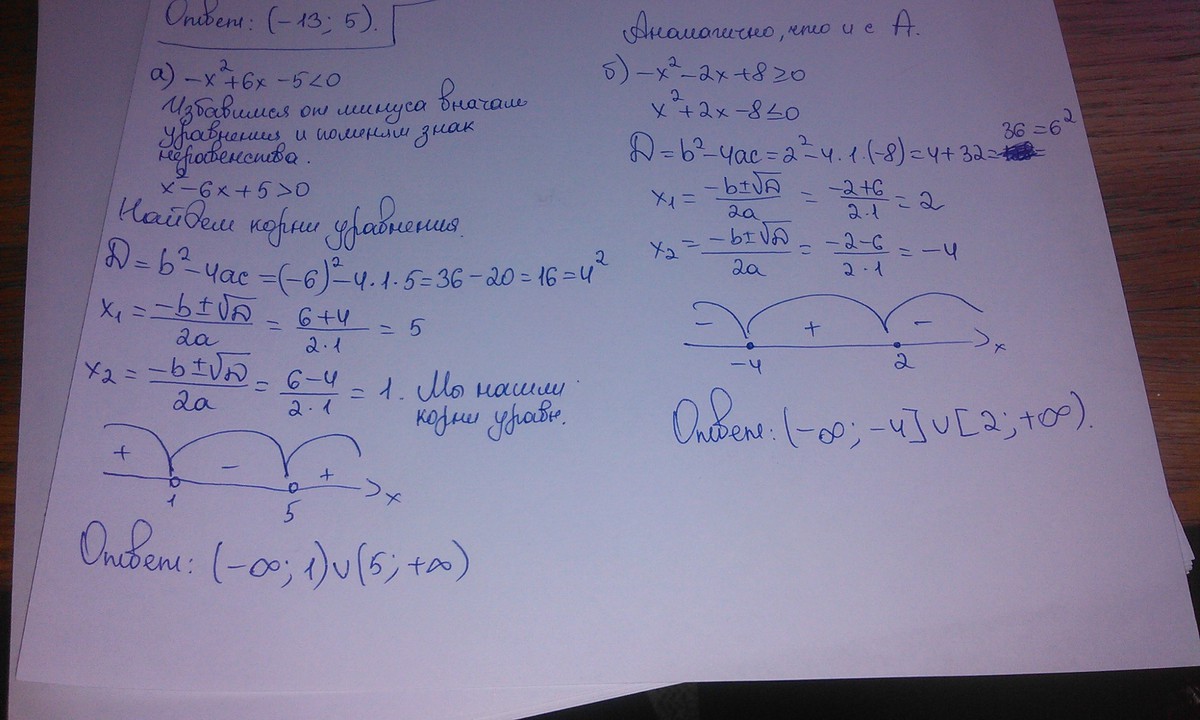 Ответ: (-13; 5).
а) -x²+6x-5<0
Избавимся от минуса вначале
уравнения и поменям знак
неравенства.
x²-6x+5>0
Найдем корни уравнения.
D=b²-4ac=(-6)²-4·1·5=36-20=16=4²
x₁=\frac{-b±√D}{2a}=\frac{6+4}{2·1}=5
x₂=\frac{-b±√D}{2a}=\frac{6-4}{2·1}=1. Мы нашли
корни уравн.
+ - + x
1 5
Ответ: (-∞; 1)∪(5; +∞)
Аналогично, что и с А.
б) -x²-2x+8≥0
x²+2x-8≤0
36=6²
D=b²-4ac=2²-4·1·(-8)=4+32=
x₁=\frac{-b±√D}{2a}=\frac{-2+6}{2·1}=2
x₂=\frac{-b±√D}{2a}=\frac{-2-6}{2·1}=-4
- + - x
-4 2
Ответ: (-∞; -4]∪[2; +∞).